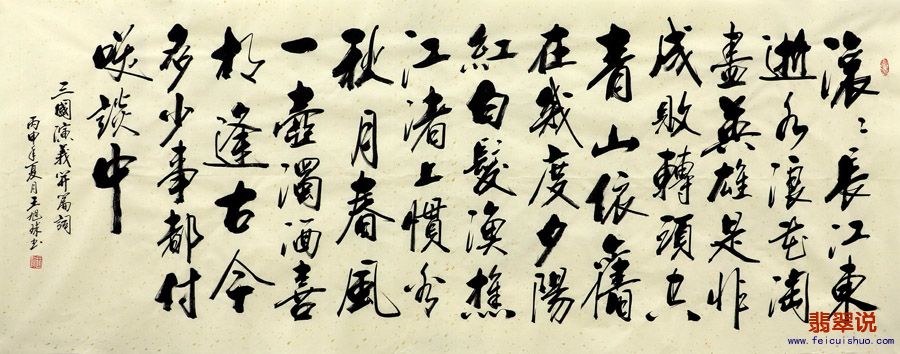 滚〻長江東
逝水浪花淘
盡英雄是非
成敗轉頭空
青山依舊
在幾度夕陽
紅白髮漁樵
江渚上慣看
秋月春風
一壺濁酒喜
相逢古今
多少事都付
咲談中
三國演義开篇詞
丙申年夏月王旭球书
翡翠说
www.feicuishuo.com